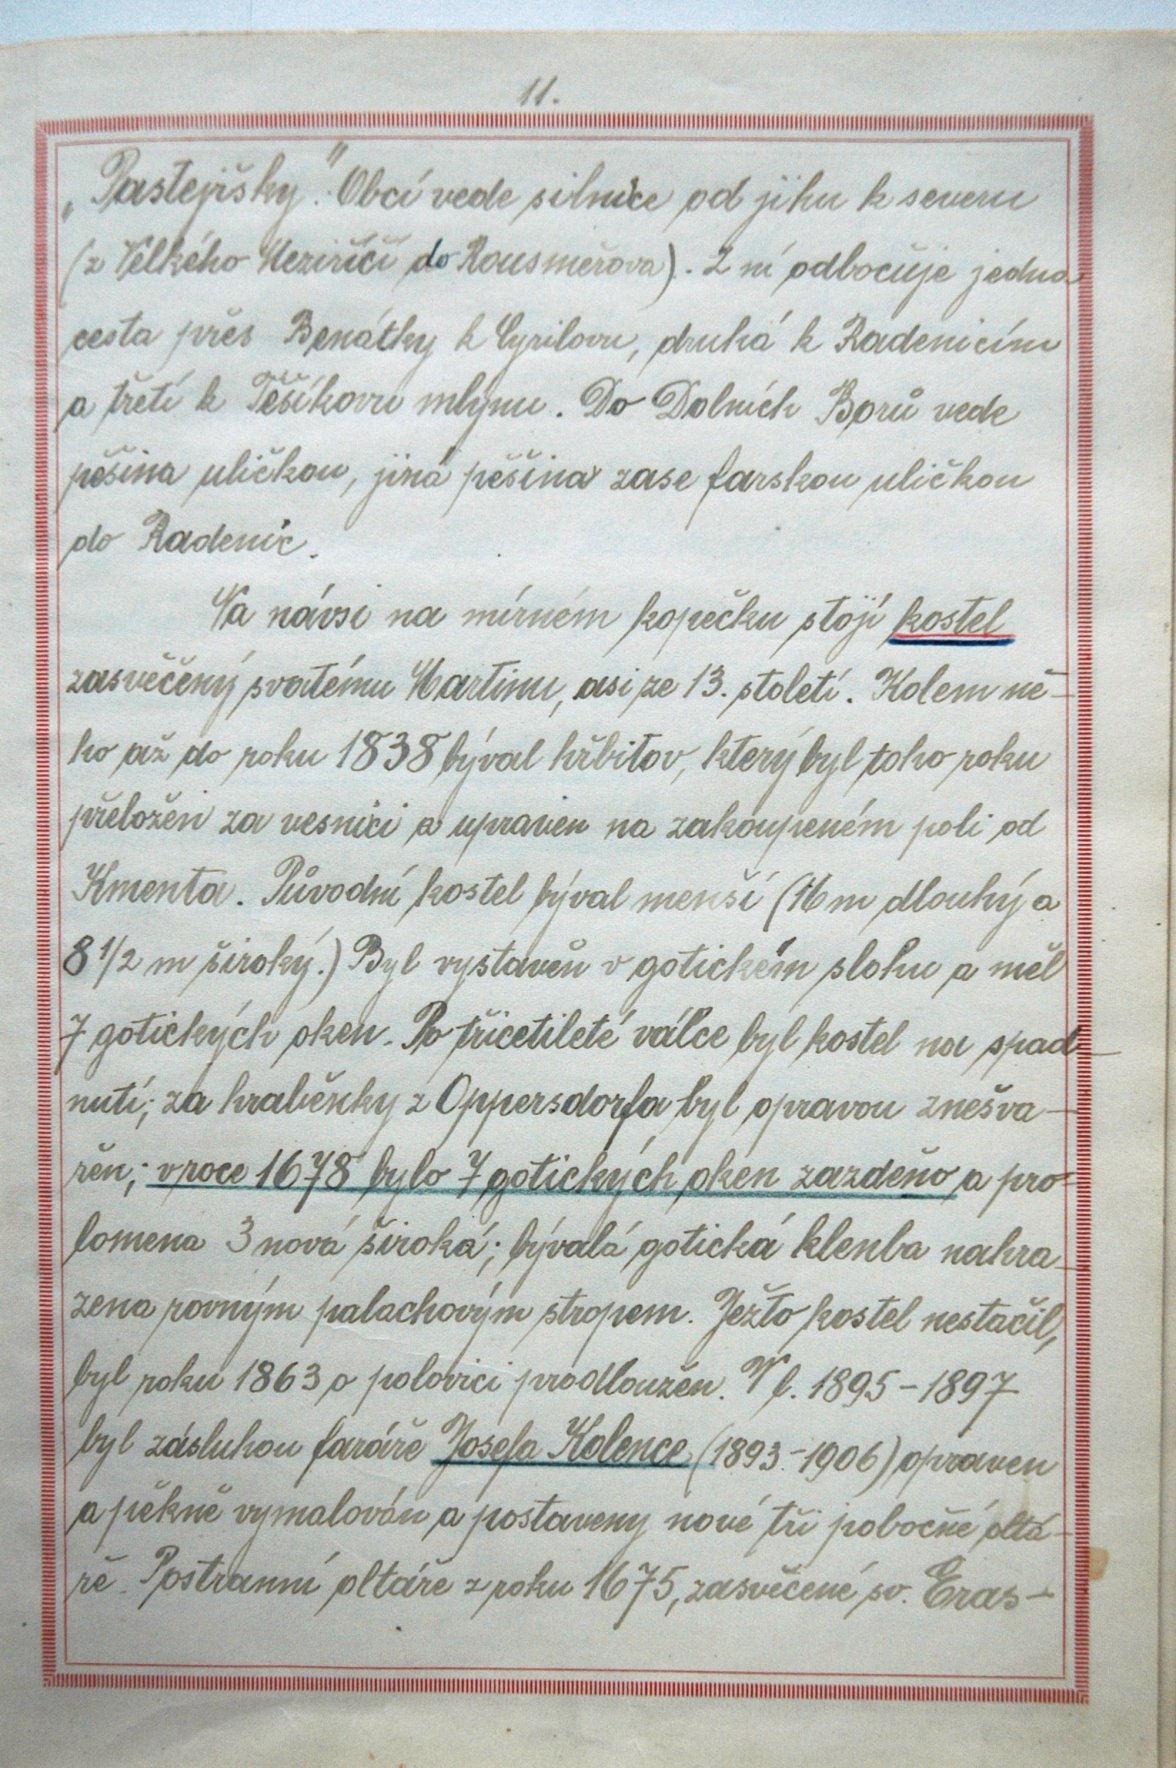 11.
„Pastejřsky." Obcí vede silnice od jihu k severu
(z Velkého Meziříčí do Rousměrova). Z ní odbočuje jedna
cesta přes Benátky k Cyrilovu, druhá k Radenicím
a třetí k Těšíkovu mlýnu. Do Dolních Borů vede
pěšina uličkou, jiná pěšina zase farskou uličkou
do Radenic.
Na návsi na mírném kopečku stojí kostel
zasvěcený svatému Martinu, asi ze 13. století. Kolem ně-
ho až do roku 1838 býval hřbitov, který byl toho roku
přeložen za vesnici a upraven na zakoupeném poli od
Kmenta. Původní kostel býval menší (16 m dlouhý a
8 1/2 m široký.) Byl vystavěn v gotickém slohu a měl
7 gotických oken. Po třicetileté válce byl kostel na spad-
nutí; za hraběnky z Oppersdorfa byl opravou znešva-
řen; v roce 1678 bylo 7 gotických oken zazděno a pro-
lomena 3 nová široká; bývalá gotická klenba nahra-
zena rovným palachovým stropem. Ježto kostel nestačil,
byl roku 1863 o polovici prodloužen. V l. 1895-1897
byl zásluhou faráře Josefa Kolence (1893.-1906) opraven
a pěkně vymalován a postaveny nové tři pobočné oltá-
ře. Postranní oltáře z roku 1675, zasvěcené sv. Eras-